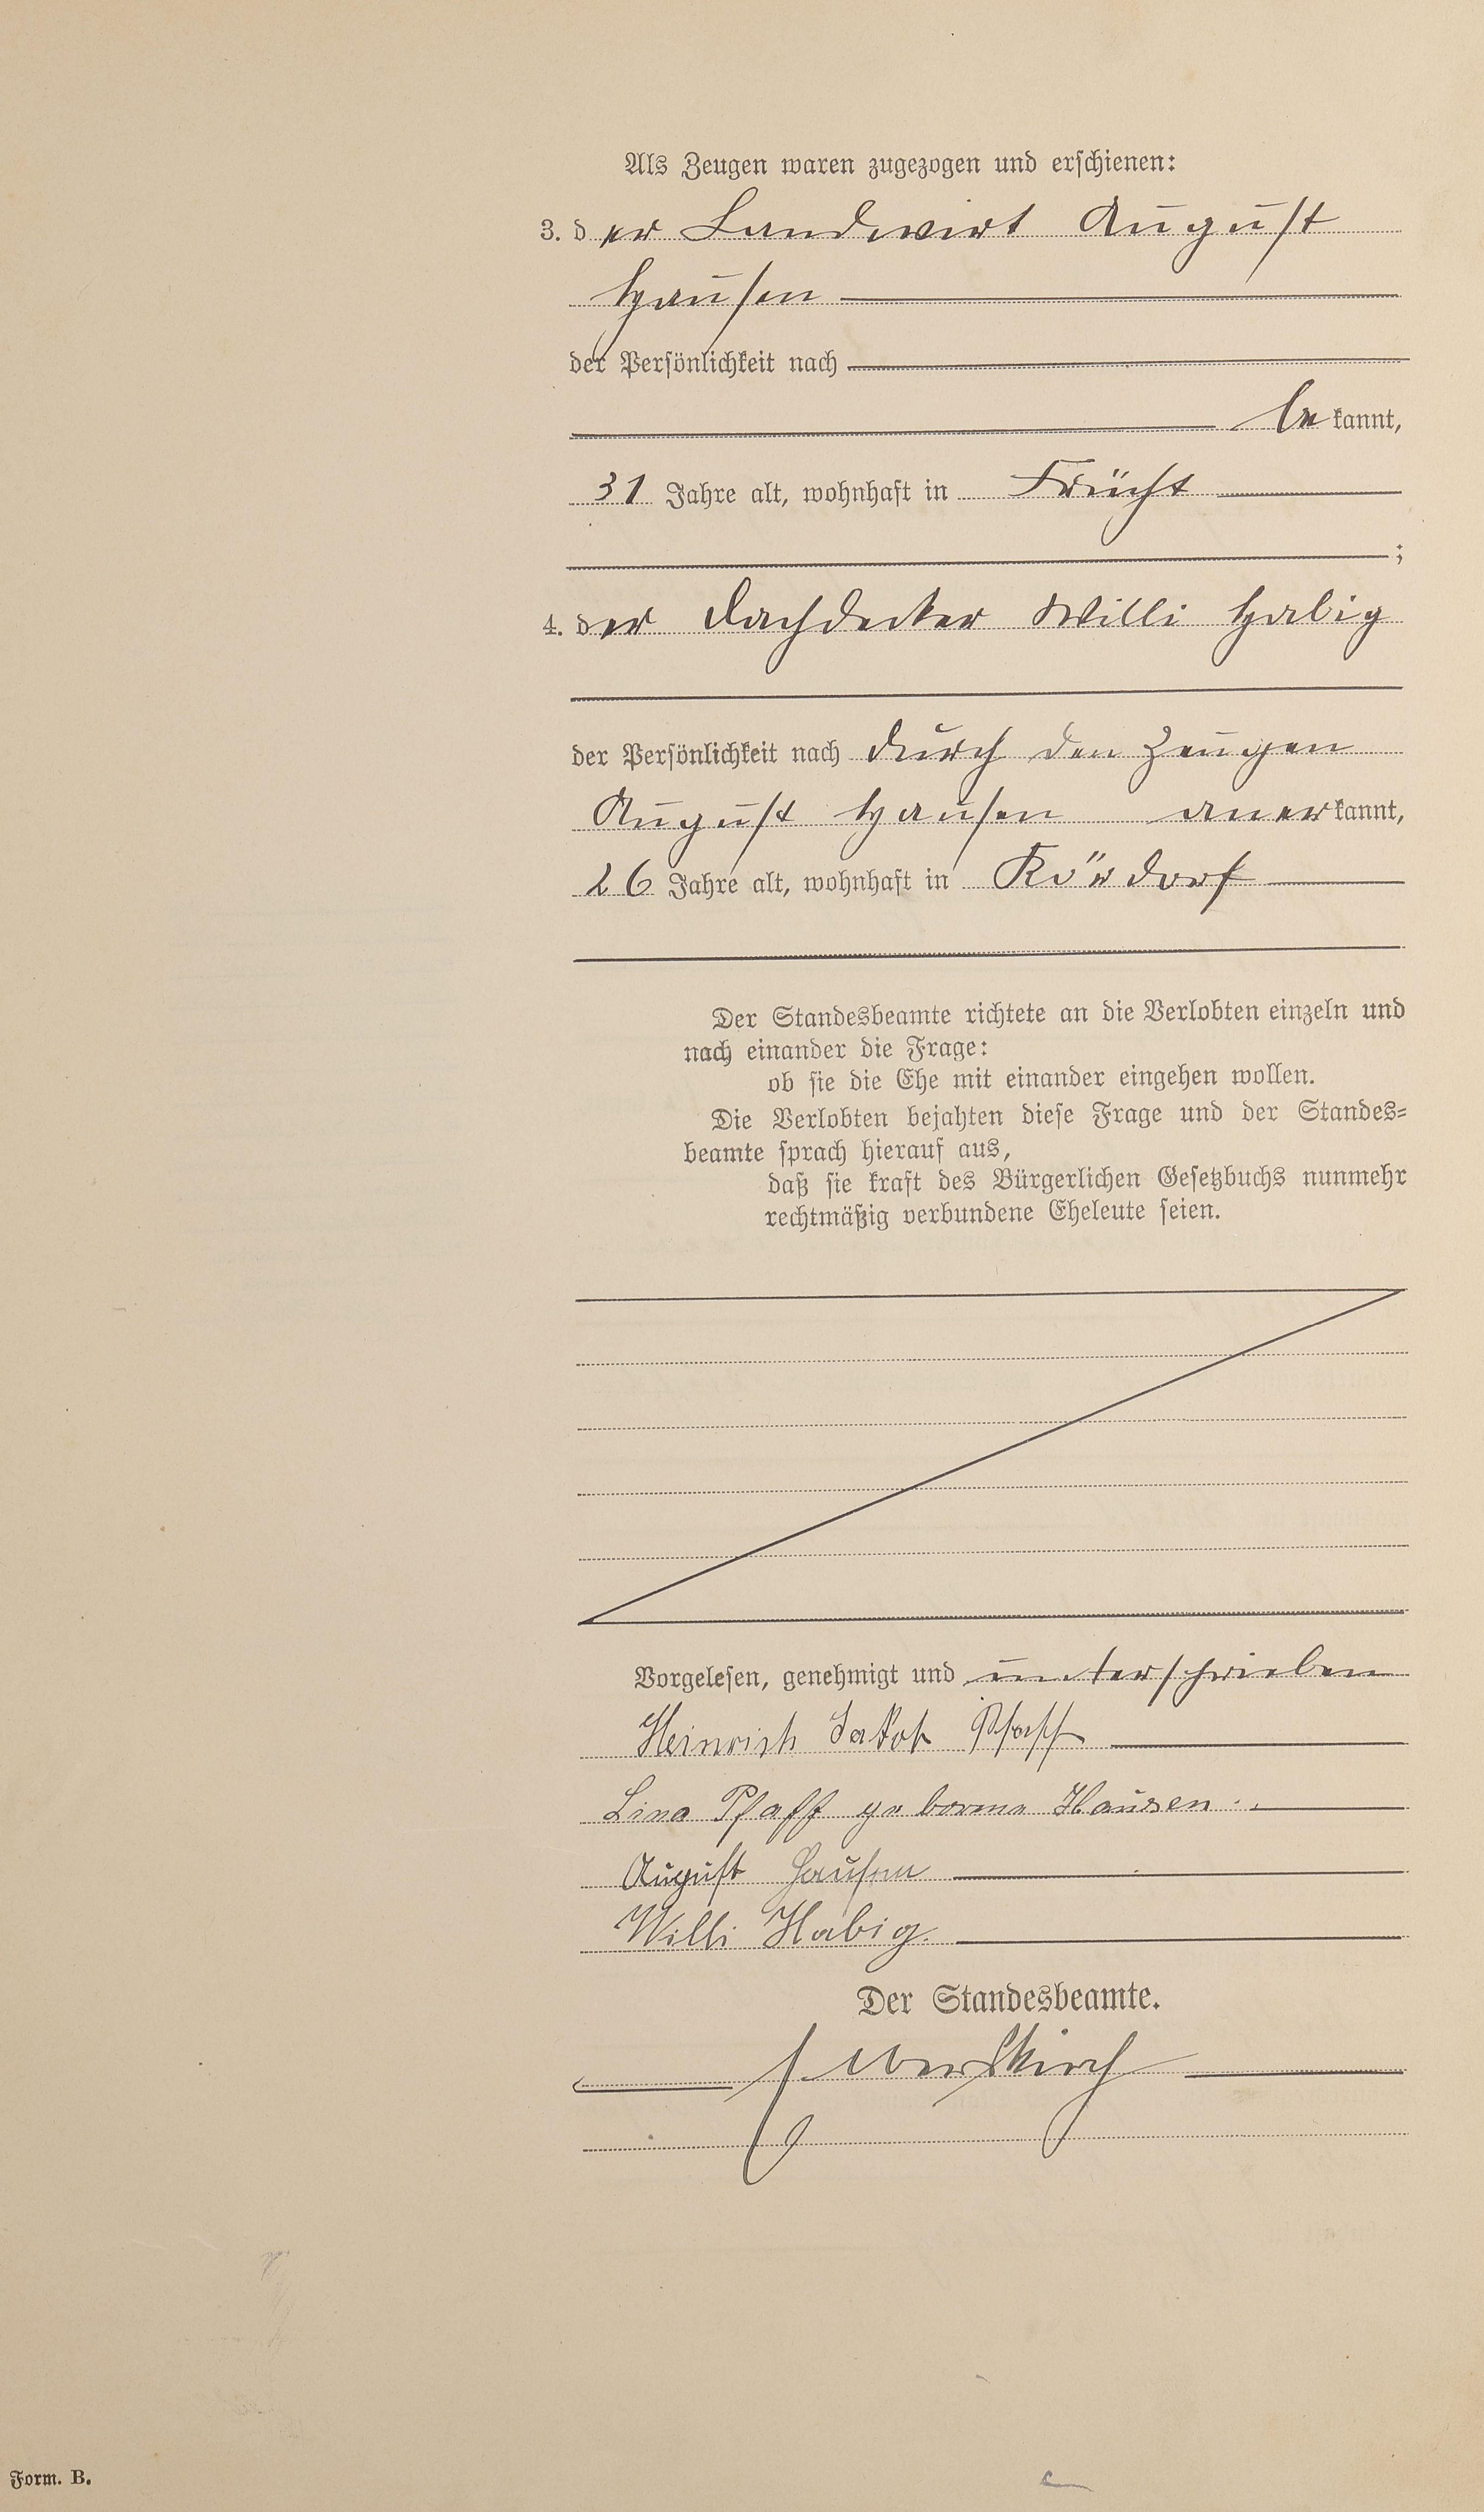 Als Zeugen waren zugezogen und erschienen:
3. der Landwirt August
Hausen
der Persönlichkeit nach
bekannt,
31 Jahre alt, wohnhaft in Frücht
;
4. der Dachdecker Willi Habig
der Persönlichkeit nach durch den Zeugen
August Hausen anerkannt,
26 Jahre alt, wohnhaft in Kördorf
Der Standesbeamte richtete an die Verlobten einzeln und
nach einander die Frage:
ob sie die Ehe mit einander eingehen wollen.
Die Verlobten bejahten diese Frage und der Standes-
beamte sprach hierauf aus,
daß sie kraft des Bürgerlichen Gesetzbuchs nunmehr
rechtmäßig verbundene Eheleute seien.
Vorgelesen, genehmigt und unterschrieben
Heinrich Jakob Pfaff
Lina Pfaff geborene Hausen
August Hausen
Willi Habig.
Der Standesbeamte.
Form. B.